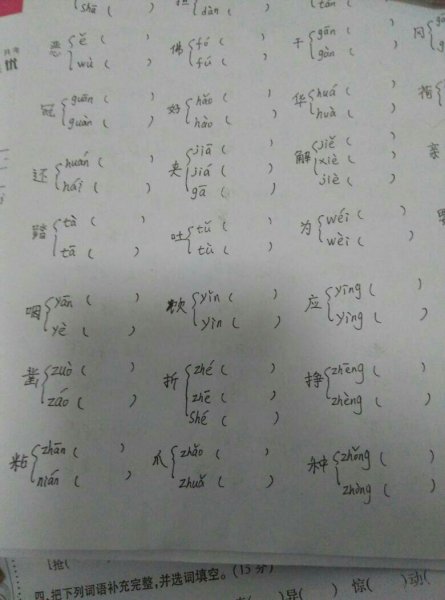 shā ( ) dàn ( ) tǎn ( )
恶 ě ( ) 佛 fó ( ) 干 gān ( ) 冈
wù ( ) fú ( ) gàn ( )
冠 guān ( ) 好 hǎo ( ) 华 huá ( )
guàn ( ) hào ( ) huà ( )
还 huán ( ) 夹 jiā ( ) 解 jiě ( )
hái ( ) jiá ( ) xiè ( )
gā ( ) jiè ( )
踏 tà ( ) 吐 tǔ ( ) 为 wéi ( )
tā ( ) tù ( ) wèi ( )
咽 yān ( ) 饮 yǐn ( ) 应 yīng ( )
yè ( ) yìn ( ) yìng ( )
凿 zuò ( ) 折 zhé ( ) 挣 zhēng ( )
záo ( ) zhē ( ) zhèng ( )
shé ( )
粘 zhān ( ) 爪 zhǎo ( ) 种 zhǒng ( )
nián ( ) zhuǎ ( ) zhòng ( )
[抢(
四、把下列词语补充完整,并选词填空。(15分)
)异( ) 惊( )动(